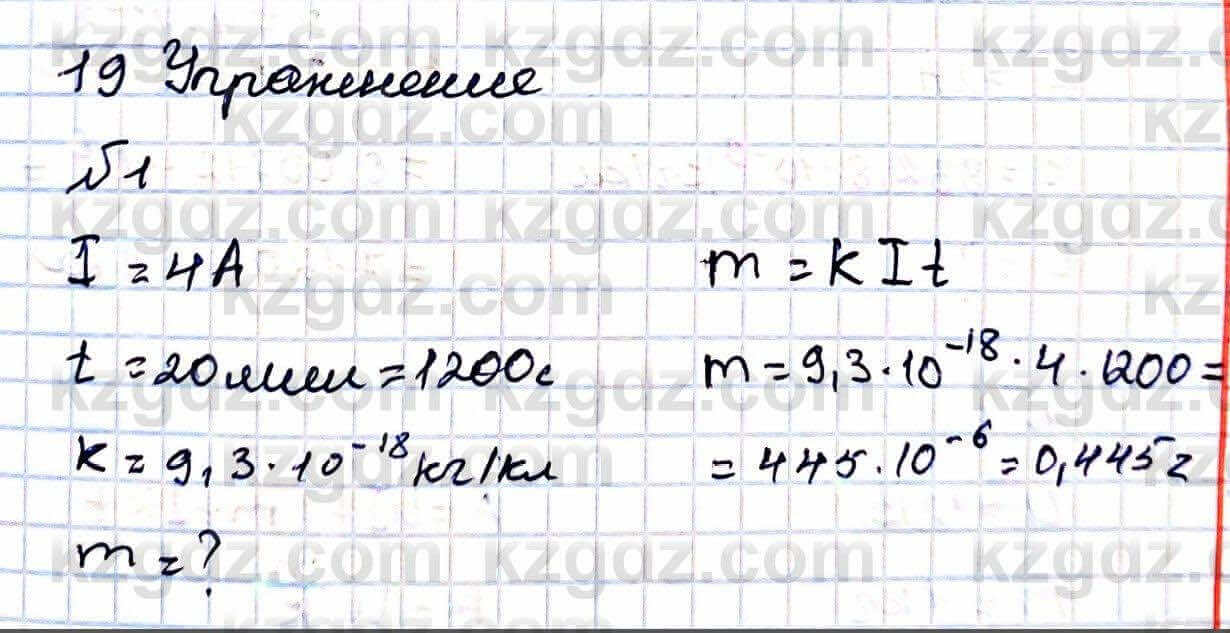 19 Упражнение
№1
I = 4А
t = 20мин = 1200с
к = 9,3·10⁻¹⁸кг/кл
m = ?
m = к I t
m = 9,3·10⁻¹⁸·4·1200 =
= 445·10⁻⁶ = 0,445г
kzgdz.com kzgdz.com kzgdz.com
kzgdz.com kz
kzgdz.com kzgdz.com kzgdz.com
kzgdz.com kz
kzgdz.com kzgdz.com kzgdz.com
kzgdz.com kz
kzgdz.com kzgdz.com kzgdz.com